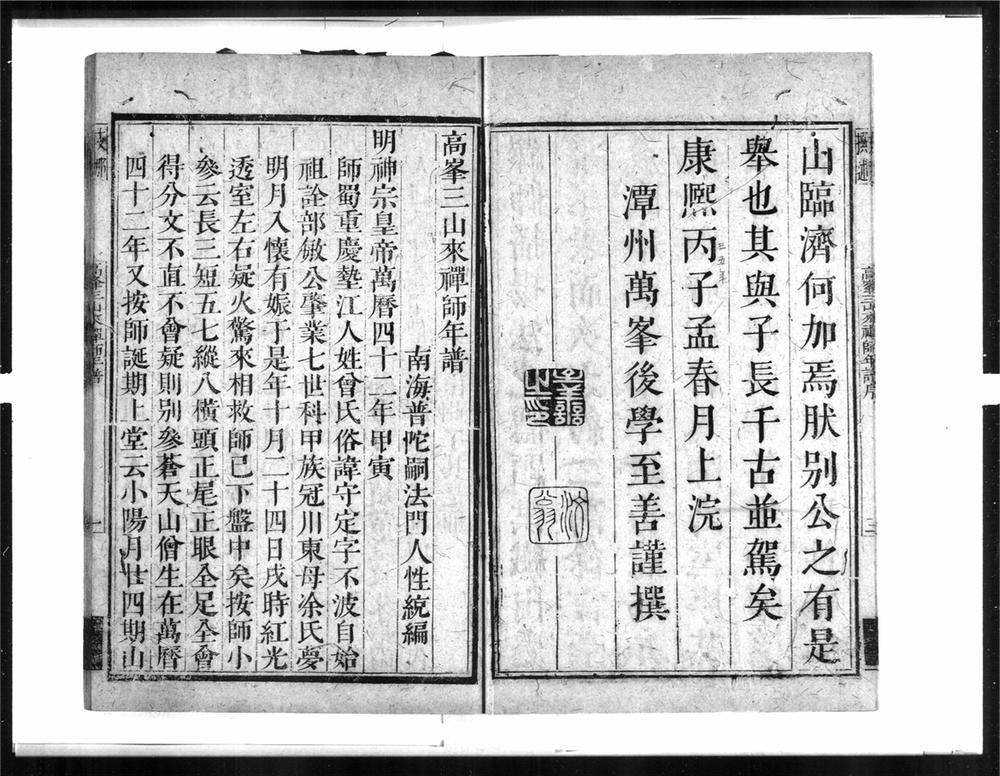 山臨濟何加焉肰別公之有是
舉也其與子長千古並駕矣
康熈丙子孟春月上浣
潭州萬峯後學至善謹撰
高峯三山來禪師年譜序
三
高峯三山來禪師年譜
南海普陀嗣法門人性統編
明神宗皇帝萬曆四十二年甲寅
師蜀重慶墊江人姓曾氏俗諱守定字不波自始
祖詮部敏公肇業七世科甲族冠川東母凃氏夢
明月入懷有娠于是年十月二十四日戌時紅光
透室左右疑火驚來相救師已下盤中矣按師小
參云長三短五七縱八橫頭正尾正眼全足全會
得分文不直不會疑則別參蒼天山僧生在萬曆
四十二年又按師誕期上堂云小陽月廿四期山
高峯三山來禪師年譜
一